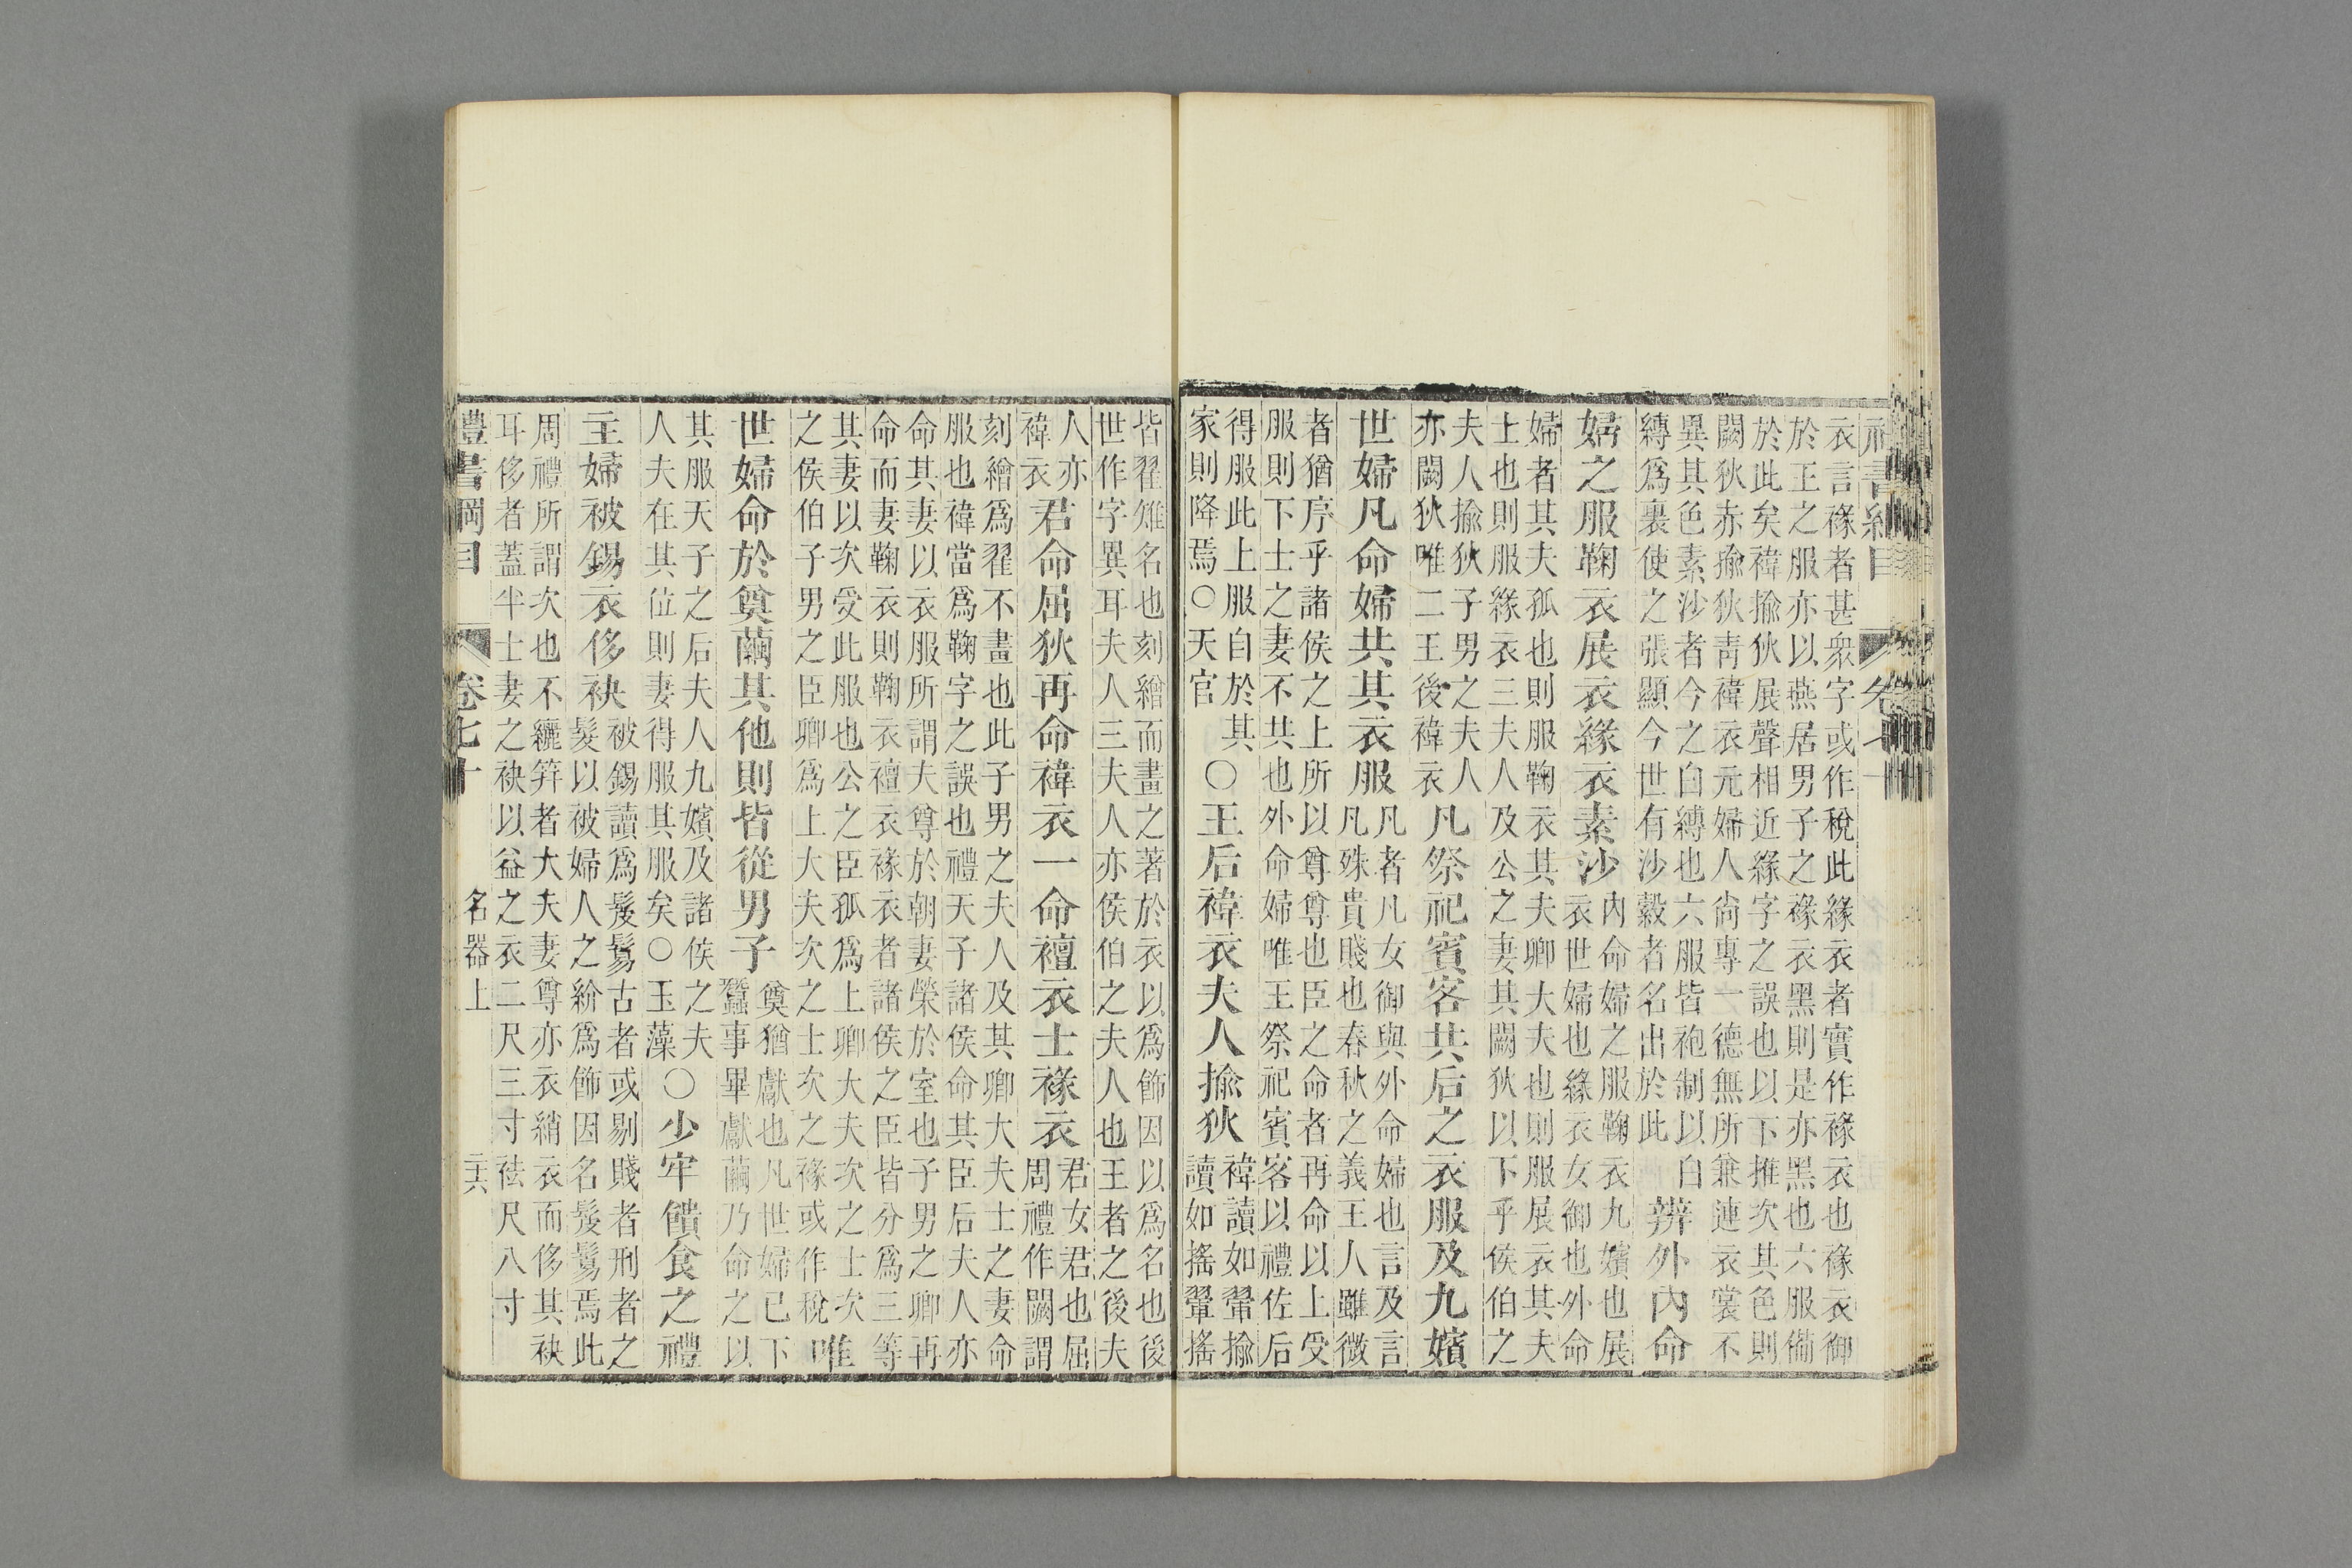 衣言褖者甚衆字或作稅此緣衣者實作褖衣也褖衣御
於王之服亦以燕居男子之褖衣黑則是亦黑也六服備
於此矣褘揄狄展聲相近緣字之誤也以下推次其色則
闕狄赤揄狄靑褘衣元婦人尙專一德無所兼連衣裳不
異其色素沙者今之白縳也六服皆袍制以白
縳爲裏使之張顯今世有沙縠者名出於此
辨外內命
婦之服鞠衣展衣緣衣素沙
內命婦之服鞠衣九嬪也展
衣世婦也緣衣女御也外命
婦者其夫孤也則服鞠衣其夫卿大夫也則服展衣其夫
士也則服緣衣三夫人及公之妻其闕狄以下乎侯伯之
夫人揄狄子男之夫人
亦闕狄唯二王後褘衣
凡祭祀賓客共后之衣服及九嬪
世婦凡命婦共其衣服
凡者凡女御與外命婦也言及言
凡殊貴賤也春秋之義王人雖微
者猶序乎諸侯之上所以尊尊也臣之命者再命以上受
服則下士之妻不共也外命婦唯王祭祀賓客以禮佐后
得服此上服自於其
家則降焉○天官
○王后褘衣夫人揄狄
褘讀如翬揄
讀如搖翬搖
皆翟雉名也刻繒而畫之著於衣以爲飾因以爲名也後
世作字異耳夫人三夫人亦侯伯之夫人也王者之後夫
人亦
褘衣
君命屈狄再命褘衣一命襢衣士褖衣
君女君也屈
周禮作闕謂
刻繒爲翟不畫也此子男之夫人及其卿大夫士之妻命
服也褘當爲鞠字之誤也禮天子諸侯命其臣后夫人亦
命其妻以衣服所謂夫尊於朝妻榮於室也子男之卿再
命而妻鞠衣則鞠衣襢衣褖衣者諸侯之臣皆分爲三等
其妻以次受此服也公之臣孤爲上卿大夫次之士次
之侯伯子男之臣卿爲上大夫次之士次之褖或作稅
唯
世婦命於奠繭其他則皆從男子
奠猶獻也凡世婦已下
蠶事畢獻繭乃命之以
其服天子之后夫人九嬪及諸侯之夫
人夫在其位則妻得服其服矣○玉藻
○少牢饋食之禮
主婦被錫衣侈袂
被錫讀爲髲鬄古者或剔賤者刑者之
髮以被婦人之紒爲飾因名髲鬄焉此
周禮所謂次也不纚筓者大夫妻尊亦衣綃衣而侈其袂
耳侈者蓋半士妻之袂以益之衣二尺三寸袪尺八寸
禮書綱目
卷七十
名器上